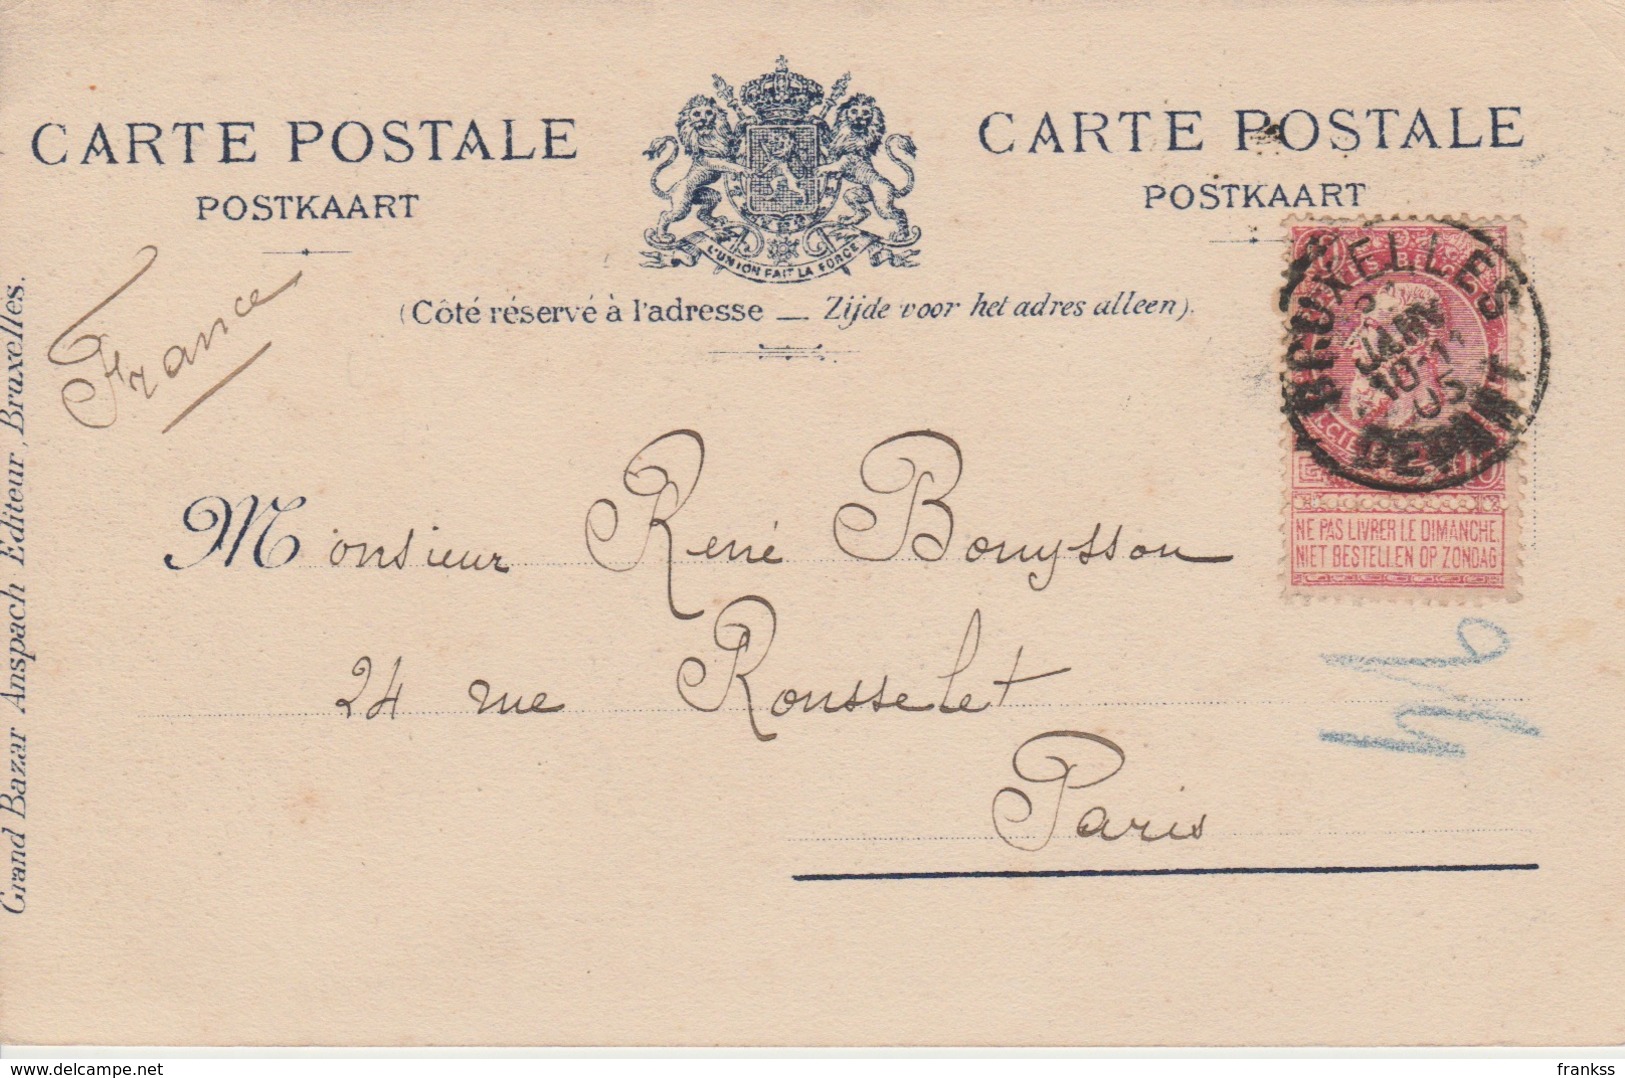 CARTE POSTALE
POSTKAART
L'UNION FAIT LA FORCE
CARTE POSTALE
POSTKAART
(Côté réservé à l'adresse — Zijde voor het adres alleen).
France
BRUXELLES
JANV
10-11
05
DEPART
NE PAS LIVRER LE DIMANCHE
NIET BESTELLEN OP ZONDAG
Monsieur René Bouysson
24 rue Rousselet
Paris
Grand Bazar Anspach Editeur, Bruxelles.
delcampe.net
frankss